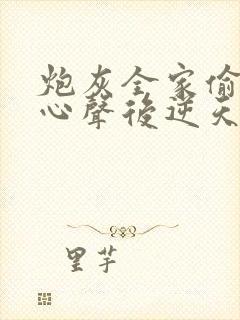 炮灰全家偷
心聲後逆天
里芋